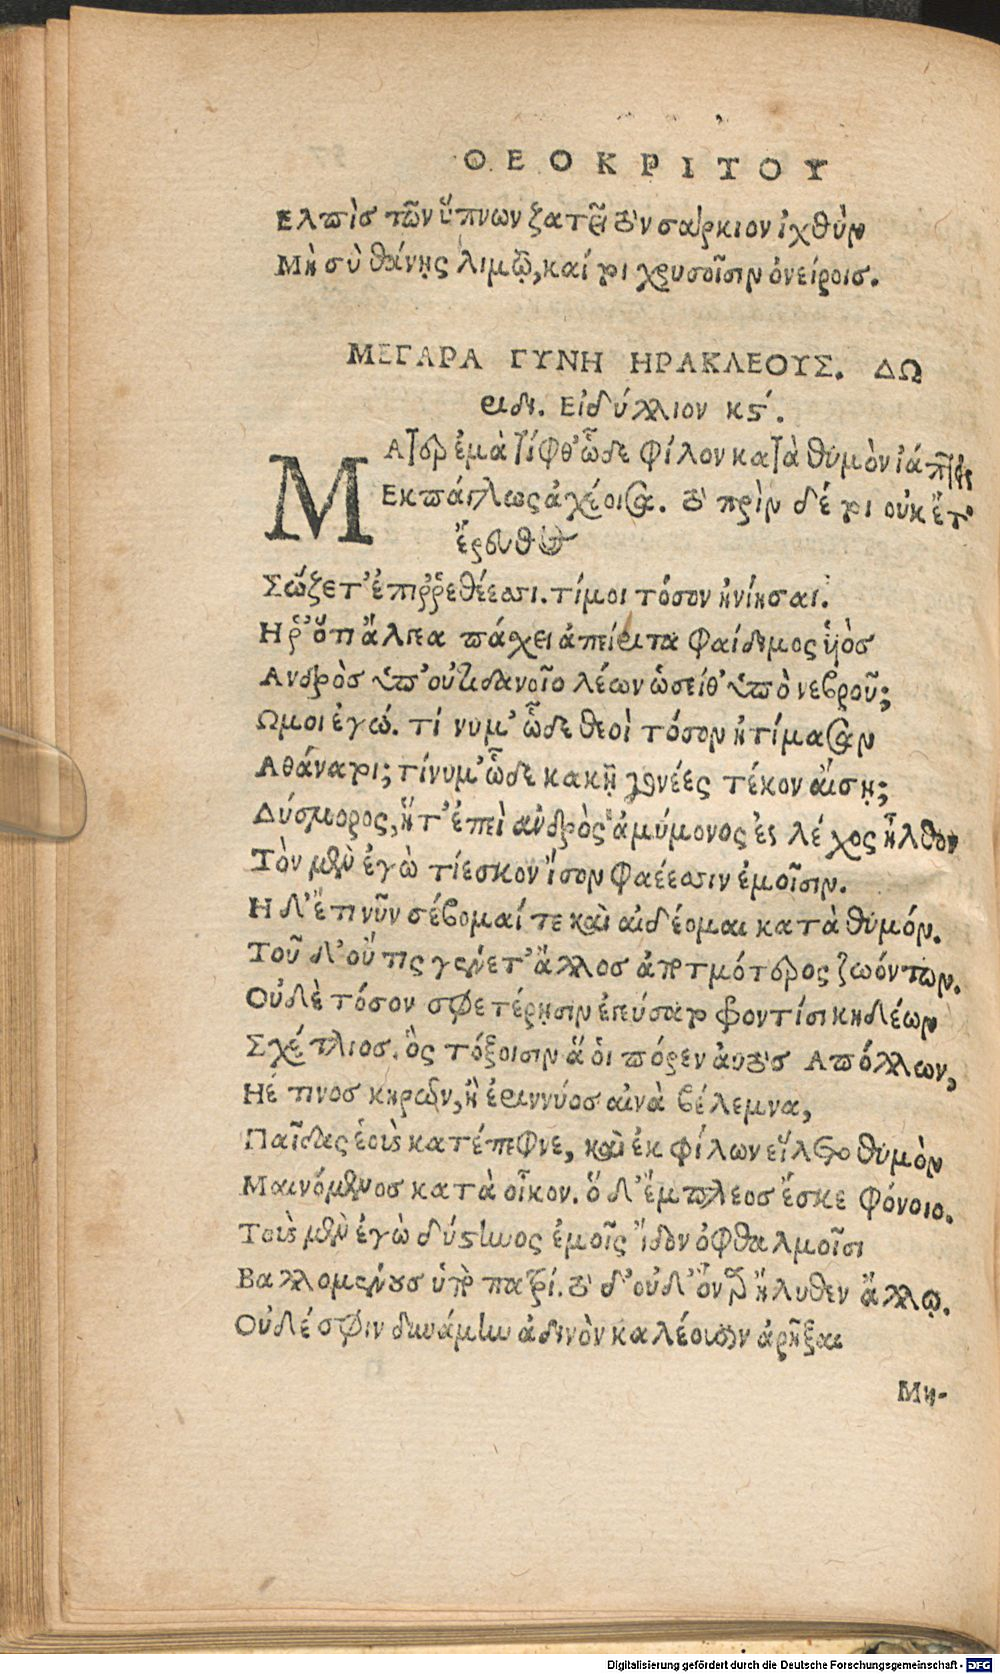 ΘΕΟΚΡΙΤΟΥ
Ελπὶς τῶν ὕπνων ζατει τὸν σάρκινον ἰχθὺν
Μὴ σὺ θάνῃς λιμῷ, καί τοι χρυσοῖσιν ὀνείροις.
ΜΕΓΑΡΑ ΓΥΝΗ ΗΡΑΚΛΕΟΥΣ. ΔΩ
ριδι. Εἰδύλλιον κϛʹ.
ΜΑτερ ἐμὰ τίφθ' ὧδε φίλον κατὰ θυμὸν ἰάπτεις
Εκπάγλως ἀχέουσα. τὸ πρὶν δέ τοι οὐκ ἔτ'
ἔρευθος
Σώζετ' ἐπὶ ῥεθέεσσι. τί μοι τόσον ἠνίησαι.
Η ῥ' ὅτι ἄλγεα πάσχει ἀπείριτα φαίδιμος υἱὸς
Ανδρὸς ὑπ' οὐτιδανοῖο λέων ὡσείθ' ὑπὸ νεβροῦ;
Ωμοι ἐγώ. τί νυ μ' ὧδε θεοὶ τόσον ἠτίμασαν
Αθάνατοι; τί νυ μ' ὧδε κακῇ γονέες τέκον αἴσῃ;
Δύσμορος, ἥτ' ἐπεὶ ἀνδρὸς ἀμύμονος ἐς λέχος ἦλθον
Τὸν μὲν ἐγὼ τίεσκον ἴσον φαέεσσιν ἐμοῖσιν.
Η δ' ἔτι νῦν σέβομαί τε καὶ αἰδέομαι κατὰ θυμόν.
Τοῦ δ' οὔτις γένετ' ἄλλος ἀποτμότερος ζωόντων.
Οὐδὲ τόσον σφετέρῃσιν ἐγεύσατο φροντίσι κηδέων
Σχέτλιος. ὃς τόξοισιν ἅ οἱ πόρεν αὐτὸς Απόλλων,
Ηέ τινος κηρῶν, ἢ ἐριννύος αἰνὰ βέλεμνα,
Παῖδας ἑοὺς κατέπεφνε, καὶ ἐκ φίλων εἵλετο θυμὸν
Μαινόμενος κατὰ οἶκον. ὅ δ' ἔμπλεος ἔσκε φόνοιο.
Τοὺς μὲν ἐγὼ δύστηνος ἐμοῖς ἴδον ὀφθαλμοῖσι
Βαλλομένους ὑπὸ πατρί. τὸ δ' οὐδ' ὄναρ ἤλυθεν ἄλλῳ.
Οὐδέ σφιν δυνάμην ἀδινὸν καλέουσιν ἀρῆξαι
Μη-
Digitalisierung gefördert durch die Deutsche Forschungsgemeinschaft - DFG